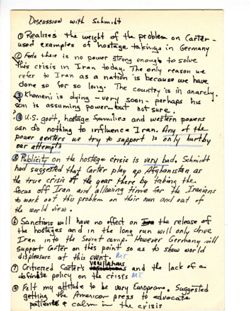 Discussion with Schmidt
① Realizes the weight of the problem on Carter -
used examples of hostage takings in Germany
② Feels there is no power strong enough to solve
the crisis in Iran today. The only reason we
refer to Iran as a nation is because we have
done so for so long. The country is in anarchy.
③ Khomeini is dying - very soon - perhaps his
son is assuming power - but not sure.
④ U.S. govt, hostage families and western powers
can do nothing to influence Iran. Any of the
power centers we try to support is only hurt by
our attempts
⑤ Publicity on the hostage crisis is very bad. Schmidt
had suggested that Carter play up Afghanistan as
the true crisis of the year thereby taking the
focus off Iran and allowing time for the Iranians
to work out this problem on their own and out of
the world view.
⑥ Sanctions will have no effect on the release of
the hostages and in the long run will only drive
Iran into the Soviet camp. However Germany will
support Carter on this point so as to show world
displeasure at this event.
⑦ Criticized Carter's and the lack of a
definite policy on the crisis
⑧ Felt my attitude to be very European. Suggested
getting the American press to advocate
patience & calm in the crisis